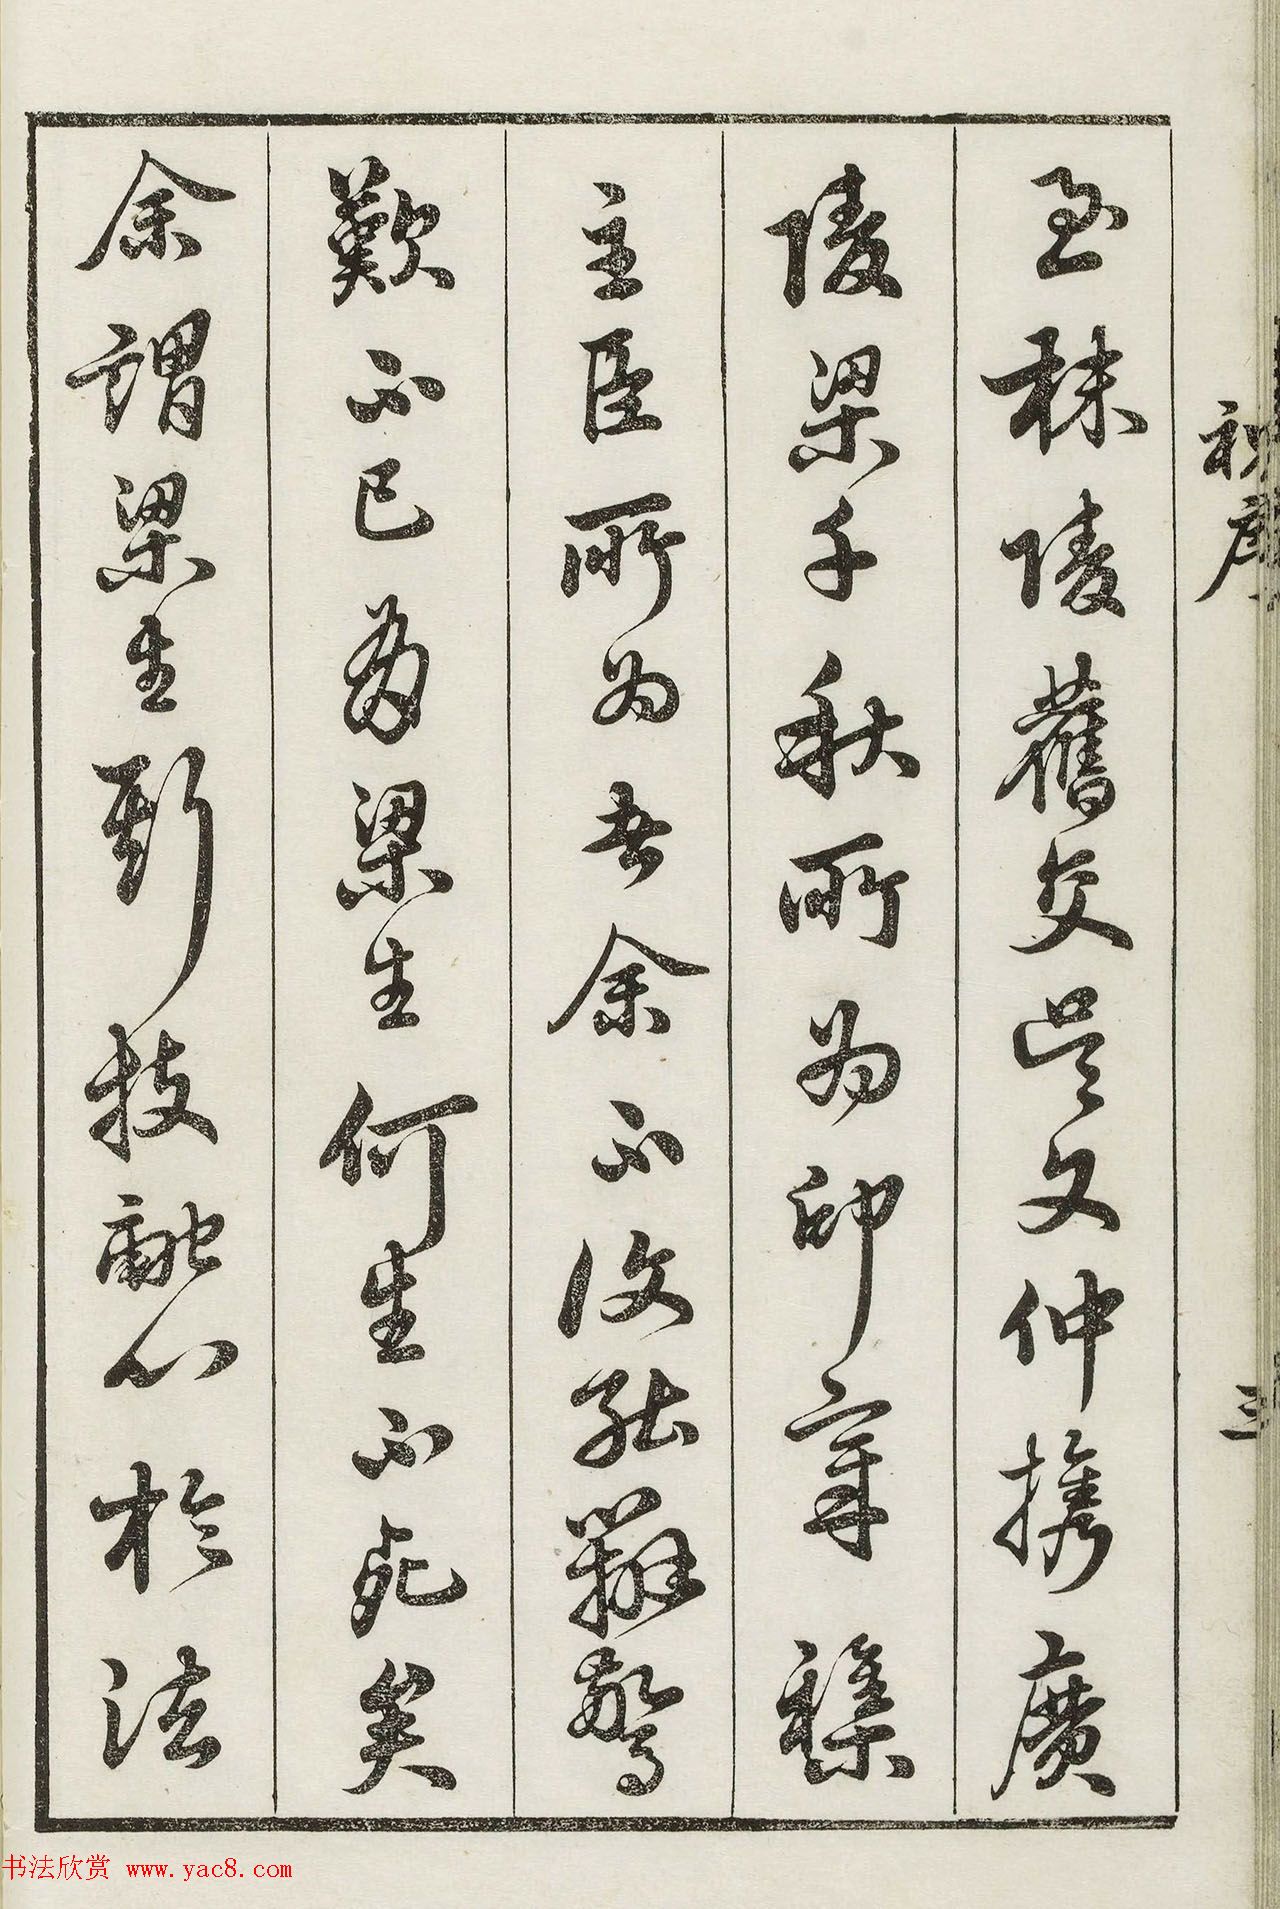 至秣陵舊交吳文仲攜廣
陵梁千秋所為印章襍
主臣所為者余不復能辨驚
歎不已為梁生何生不死矣
余謂梁生斯技融心於法
序
三
书法欣赏 www.yac8.com